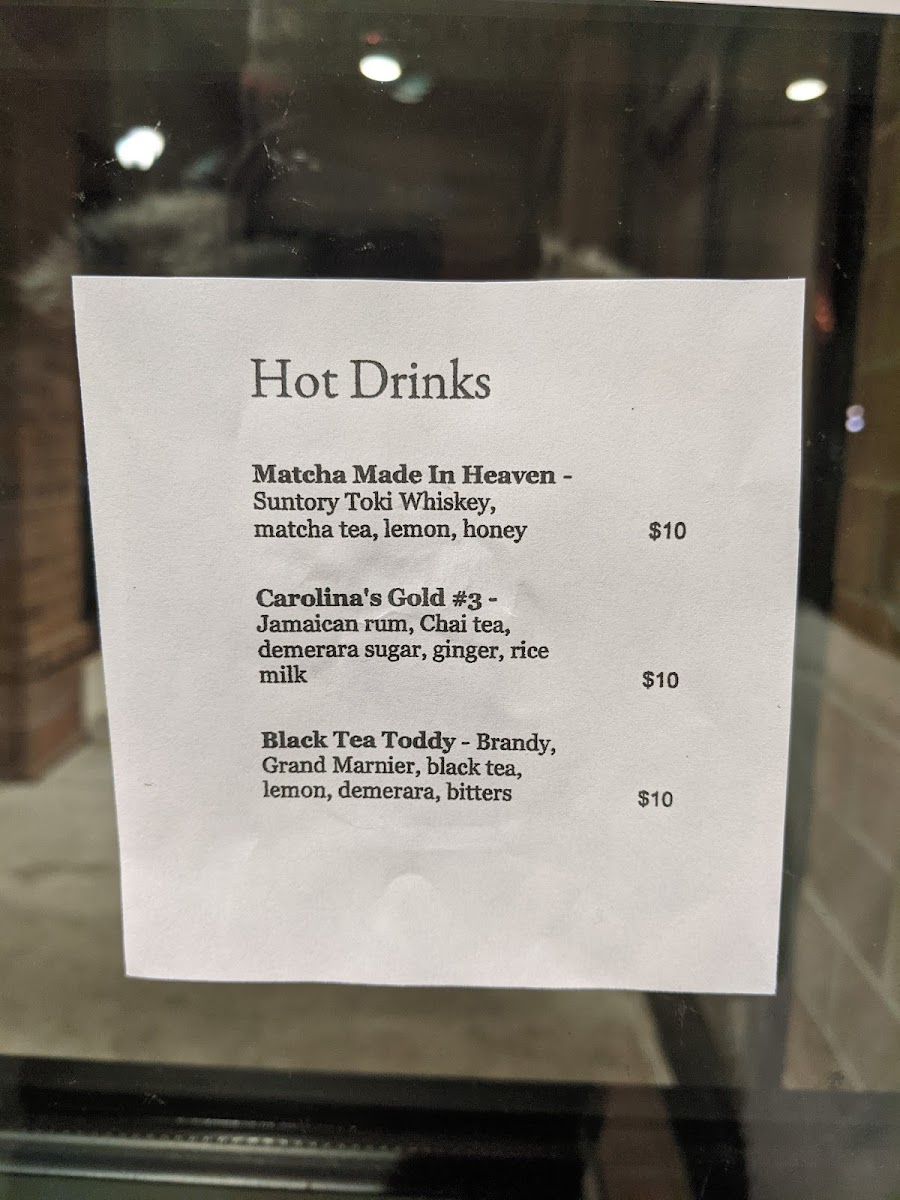 Hot Drinks
Matcha Made In Heaven -
Suntory Toki Whiskey,
matcha tea, lemon, honey $10
Carolina's Gold #3 -
Jamaican rum, Chai tea,
demerara sugar, ginger, rice
milk $10
Black Tea Toddy - Brandy,
Grand Marnier, black tea,
lemon, demerara, bitters $10